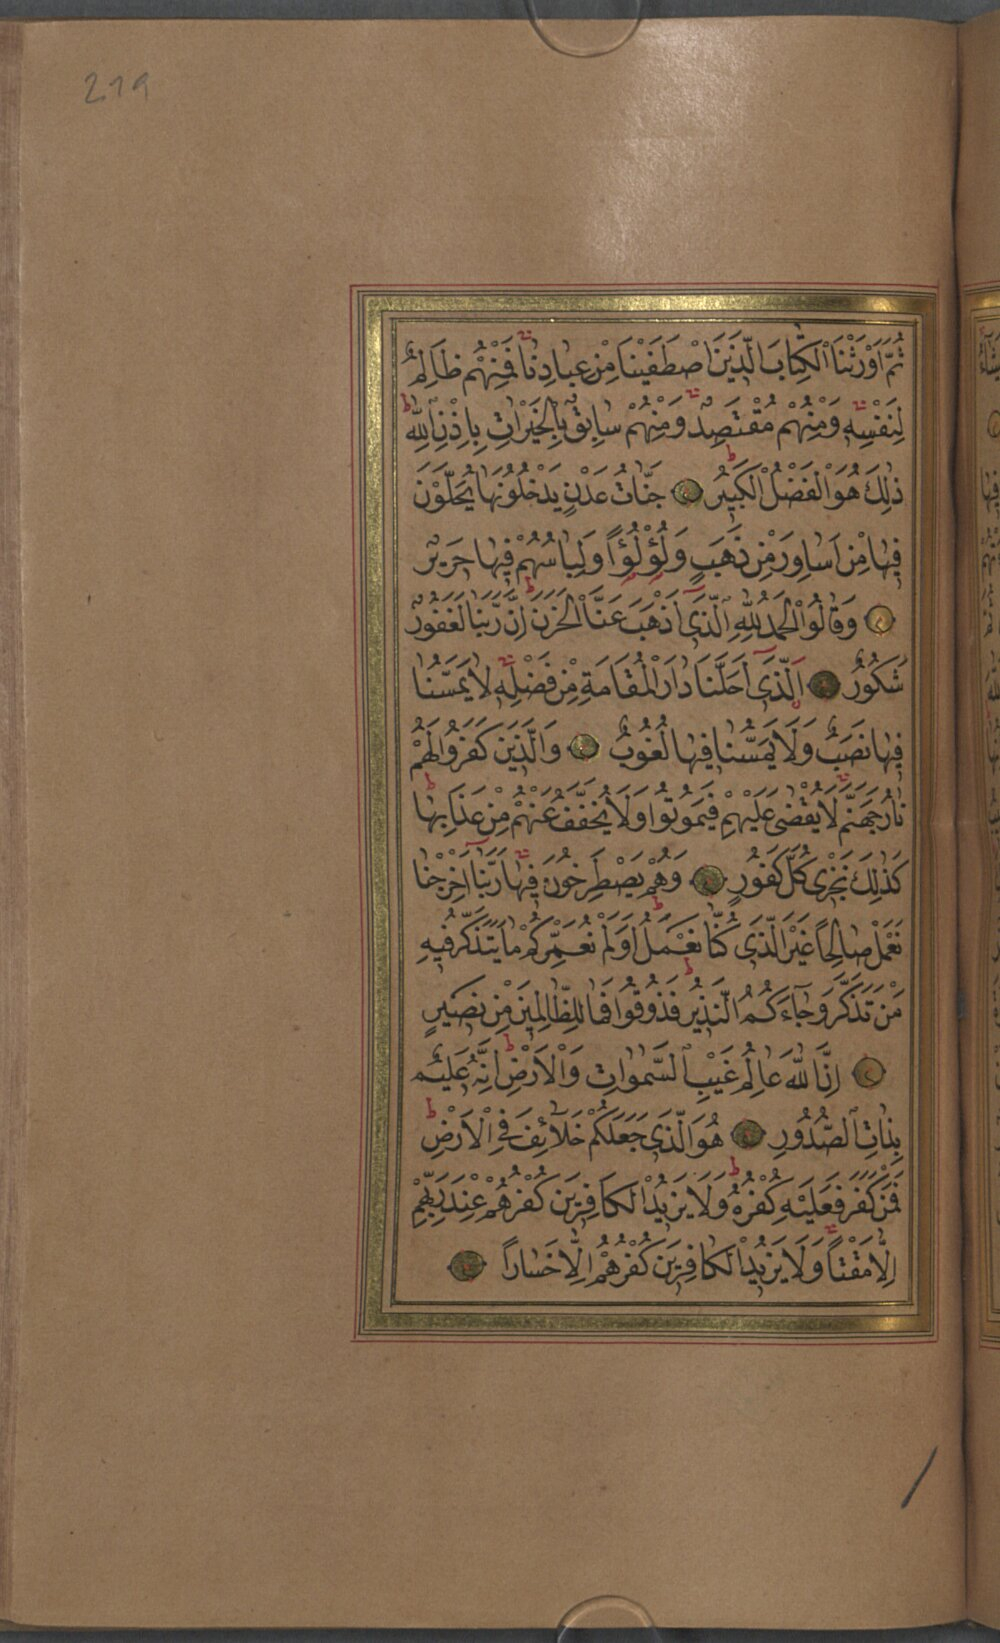 219
ثُمَّ اَوْرَثْنَا الْكِتَابَ الَّذِينَ اصْطَفَيْنَا مِنْ عِبَادِنَا فَمِنْهُمْ ظَالِمٌ
لِنَفْسِهِ وَمِنْهُمْ مُقْتَصِدٌ وَمِنْهُمْ سَابِقٌ بِالْخَيْرَاتِ بِاِذْنِ اللّٰهِ
ذٰلِكَ هُوَ الْفَضْلُ الْكَبِيرُ جَنَّاتُ عَدْنٍ يَدْخُلُونَهَا يُحَلَّوْنَ
فِيهَا مِنْ اَسَاوِرَ مِنْ ذَهَبٍ وَلُؤْلُؤًا وَلِبَاسُهُمْ فِيهَا حَرِيرٌ
وَقَالُوا الْحَمْدُ لِلّٰهِ الَّذِى اَذْهَبَ عَنَّا الْحَزَنَ اِنَّ رَبَّنَا لَغَفُورٌ
شَكُورٌ اَلَّذِى اَحَلَّنَا دَارَ الْمُقَامَةِ مِنْ فَضْلِهِ لَا يَمَسُّنَا
فِيهَا نَصَبٌ وَلَا يَمَسُّنَا فِيهَا لُغُوبٌ وَالَّذِينَ كَفَرُوا لَهُمْ
نَارُ جَهَنَّمَ لَا يُقْضٰى عَلَيْهِمْ فَيَمُوتُوا وَلَا يُخَفَّفُ عَنْهُمْ مِنْ عَذَابِهَا
كَذٰلِكَ نَجْزِى كُلَّ كَفُورٍ وَهُمْ يَصْطَرِخُونَ فِيهَا رَبَّنَا اَخْرِجْنَا
نَعْمَلْ صَالِحًا غَيْرَ الَّذِى كُنَّا نَعْمَلُ اَوَلَمْ نُعَمِّرْكُمْ مَا يَتَذَكَّرُ فِيهِ
مَنْ تَذَكَّرَ وَجَاءَكُمُ النَّذِيرُ فَذُوقُوا فَمَا لِلظَّالِمِينَ مِنْ نَصِيرٍ
اِنَّ اللّٰهَ عَالِمُ غَيْبِ السَّمٰوَاتِ وَالْاَرْضِ اِنَّهُ عَلِيمٌ
بِذَاتِ الصُّدُورِ هُوَ الَّذِى جَعَلَكُمْ خَلَائِفَ فِى الْاَرْضِ
فَمَنْ كَفَرَ فَعَلَيْهِ كُفْرُهُ وَلَا يَزِيدُ الْكَافِرِينَ كُفْرُهُمْ عِنْدَ رَبِّهِمْ
اِلَّا مَقْتًا وَلَا يَزِيدُ الْكَافِرِينَ كُفْرُهُمْ اِلَّا خَسَارًا